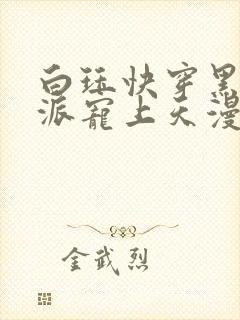 白珏快穿黑
派宠上天漫
金武烈